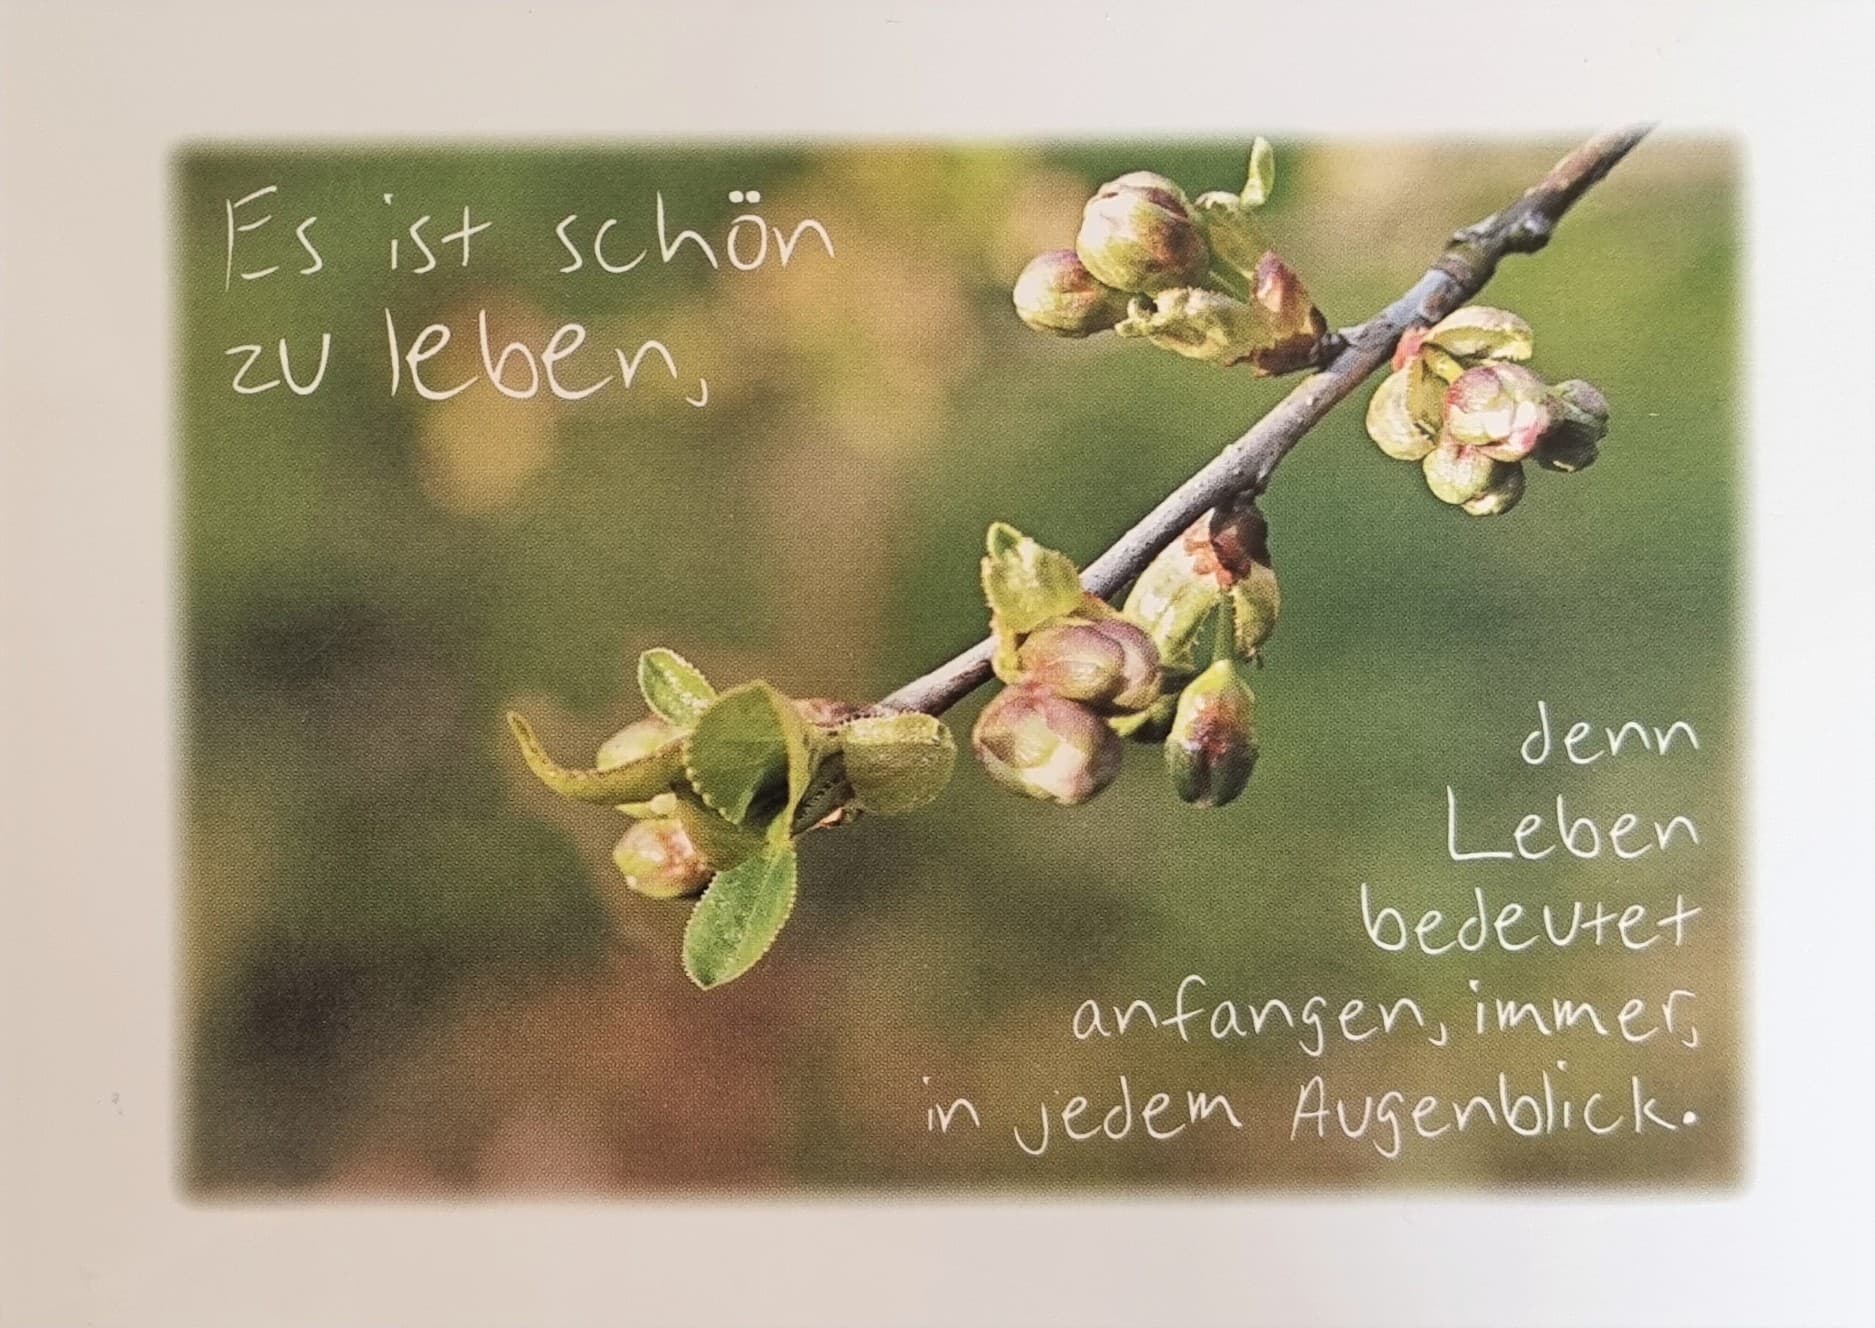 Es ist schön
zu leben,
denn
Leben
bedeutet
anfangen, immer,
in jedem Augenblick.